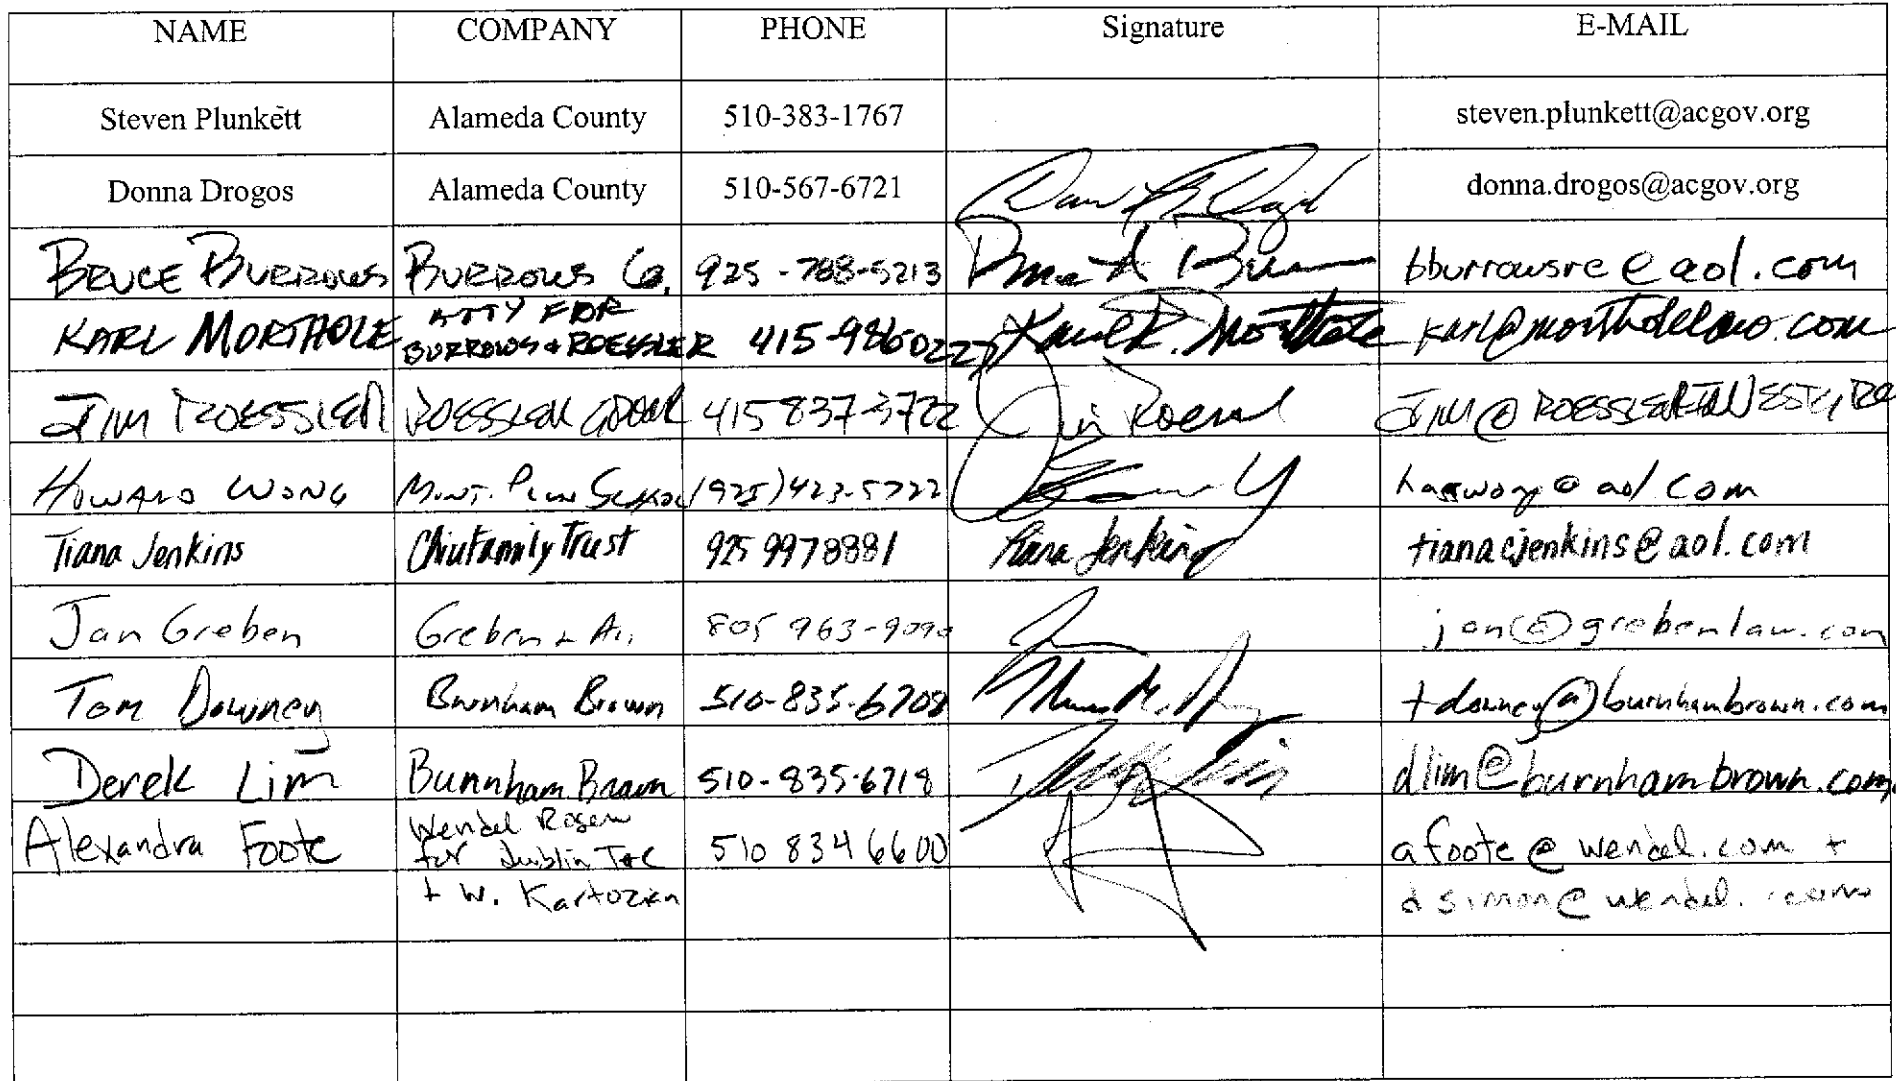 NAME COMPANY PHONE Signature E-MAIL
Steven Plunkett Alameda County 510-383-1767 steven.plunkett@acgov.org
Donna Drogos Alameda County 510-567-6721 donna.drogos@acgov.org
BRUCE BURROWS BURROWS Co. 925-768-5213 bburrowsre@aol.com
KARL MORTHOLE ATTY FOR
BURROWS + ROESSLER 415-9860227 Karl R. Morthole karl@mortholelaw.com
JIM ROESSLER ROESSLER GROUP 415 837-3722 Jim
HOWARD WONG (925)423-5722
Tiana Jenkins Chiu Family Trust 925 9978881 Tiana Jenkins tianacjenkins@aol.com
Jan Greben Greben + 805 963-9090 jan@grebenlaw.com
Tom Downey Burnham Brown 510-835-6708 tdowney@burnhambrown.com
Derek Lim Burnham Brown 510-835-6718 dlim@burnhambrown.com
Alexandra Foote Wendel Rosen
for Dublin 510 834 6600 afoote@wendel.com +
+ W. Kartozian dsimon@wendel.com